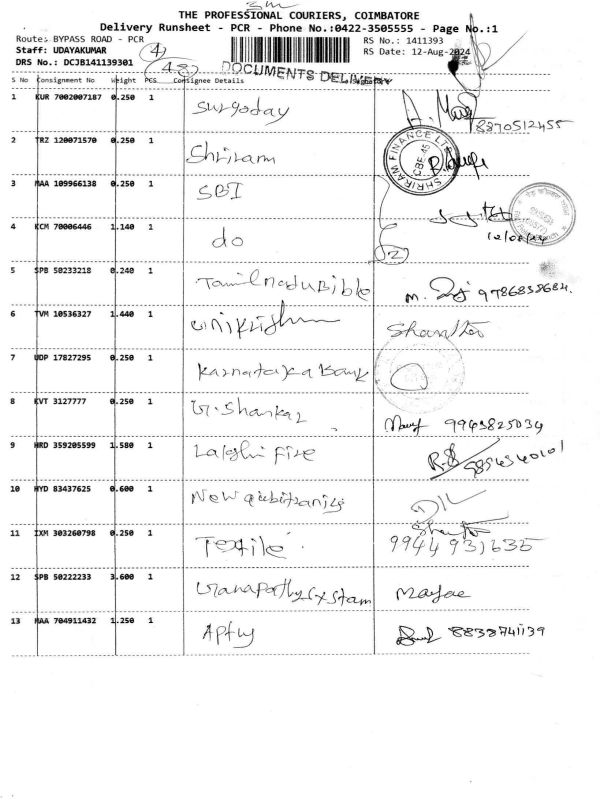 3m
THE PROFESSIONAL COURIERS, COIMBATORE
Delivery Runsheet - PCR - Phone No.:0422-3505555 - Page No.:1
Route: BYPASS ROAD - PCR RS No.: 1411393
Staff: UDAYAKUMAR 4 RS Date: 12-Aug-2024
DRS No.: DCJB141139301 48 DOCUMENTS DELIVERY
S No Consignment No Weight PCS Consignee Details
1 KUR 7002007187 0.250 1 Suryoday 8870512455
2 TRZ 120071570 0.250 1 Shriram SHRIRAM FINANCE LTD CBE-45
3 MAA 109966138 0.250 1 SBI
4 KCM 70006446 1.140 1 do 2 12/08/24
5 SPB 50233218 0.240 1 Tamilnadu Bible 9786838684.
6 TVM 10536327 1.440 1
7 UDP 17827295 0.250 1 Karnataka Bank
8 KVT 3127777 0.250 1 G.Shankar 9943825034
9 HRD 359205599 1.580 1 fire
10 HYD 83437625 0.600 1 New
11 IXM 303260798 0.250 1 Textile 9944931635
12 SPB 50222233 3.600 1
13 MAA 704911432 1.250 1 8838741139